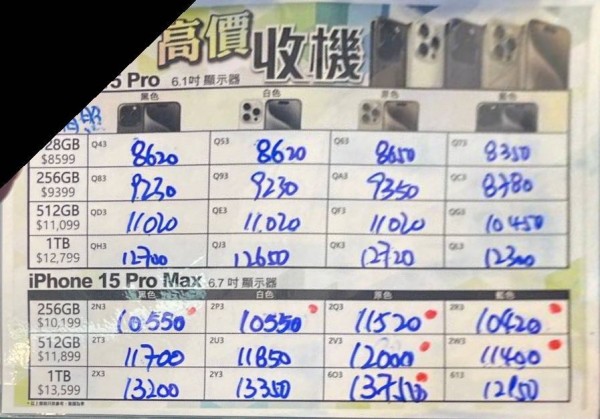 高價收機
5 Pro 6.1吋 顯示器
黑色 白色 原色 藍色
28GB $8599 Q43 8620 Q53 8620 Q63 8650 Q73 8350
256GB $9399 Q83 9230 Q93 9230 QA3 9350 QC3 8780
512GB $11,099 QD3 11020 QE3 11,020 QF3 11020 QG3 10450
1TB $12,799 QH3 12700 QJ3 12650 QK3 12720 QL3 12300
iPhone 15 Pro Max 6.7 吋 顯示器
黑色 白色 原色 藍色
256GB $10,199 2N3 10550 2P3 10550 2Q3 11520 2R3 10420
512GB $11,899 2T3 11700 2U3 11850 2V3 12000 2W3 11400
1TB $13,599 2X3 13200 2Y3 13350 6O3 13750 613